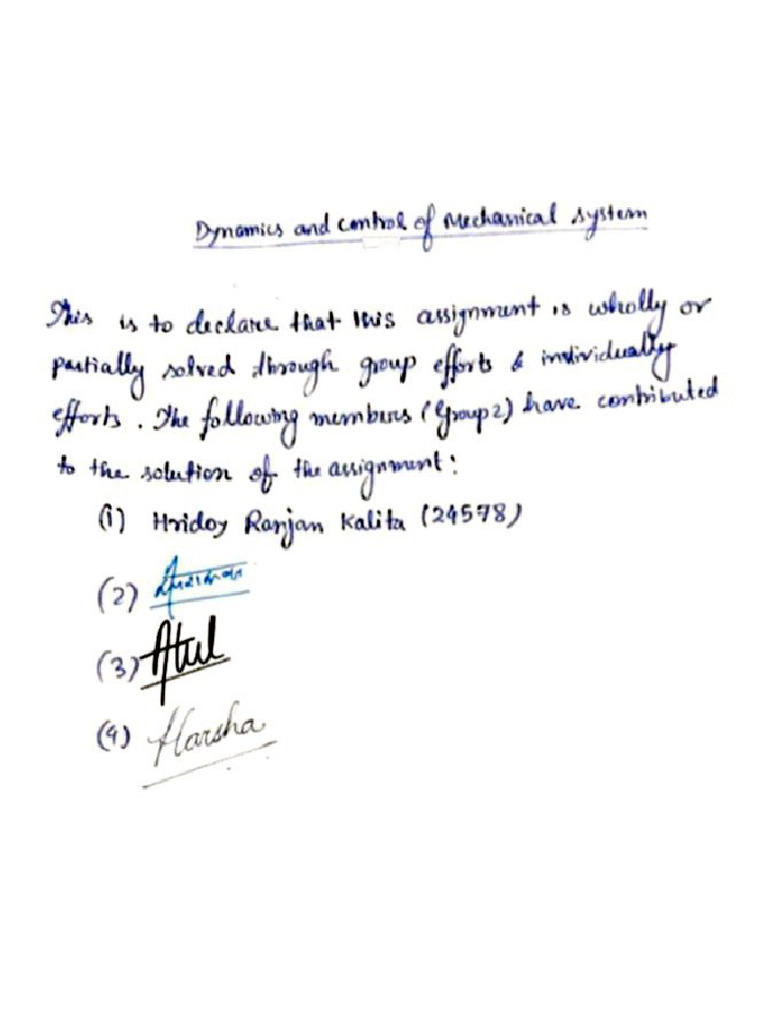 Dynamics and control of Mechanical system
This is to declare that this assignment is wholly or
partially solved through group efforts & individually
efforts. The following members (Group 2) have contributed
to the solution of the assignment:
(1) Hridoy Ranjan Kalita (24578)
(2)
(3) Atul
(4) Harsha